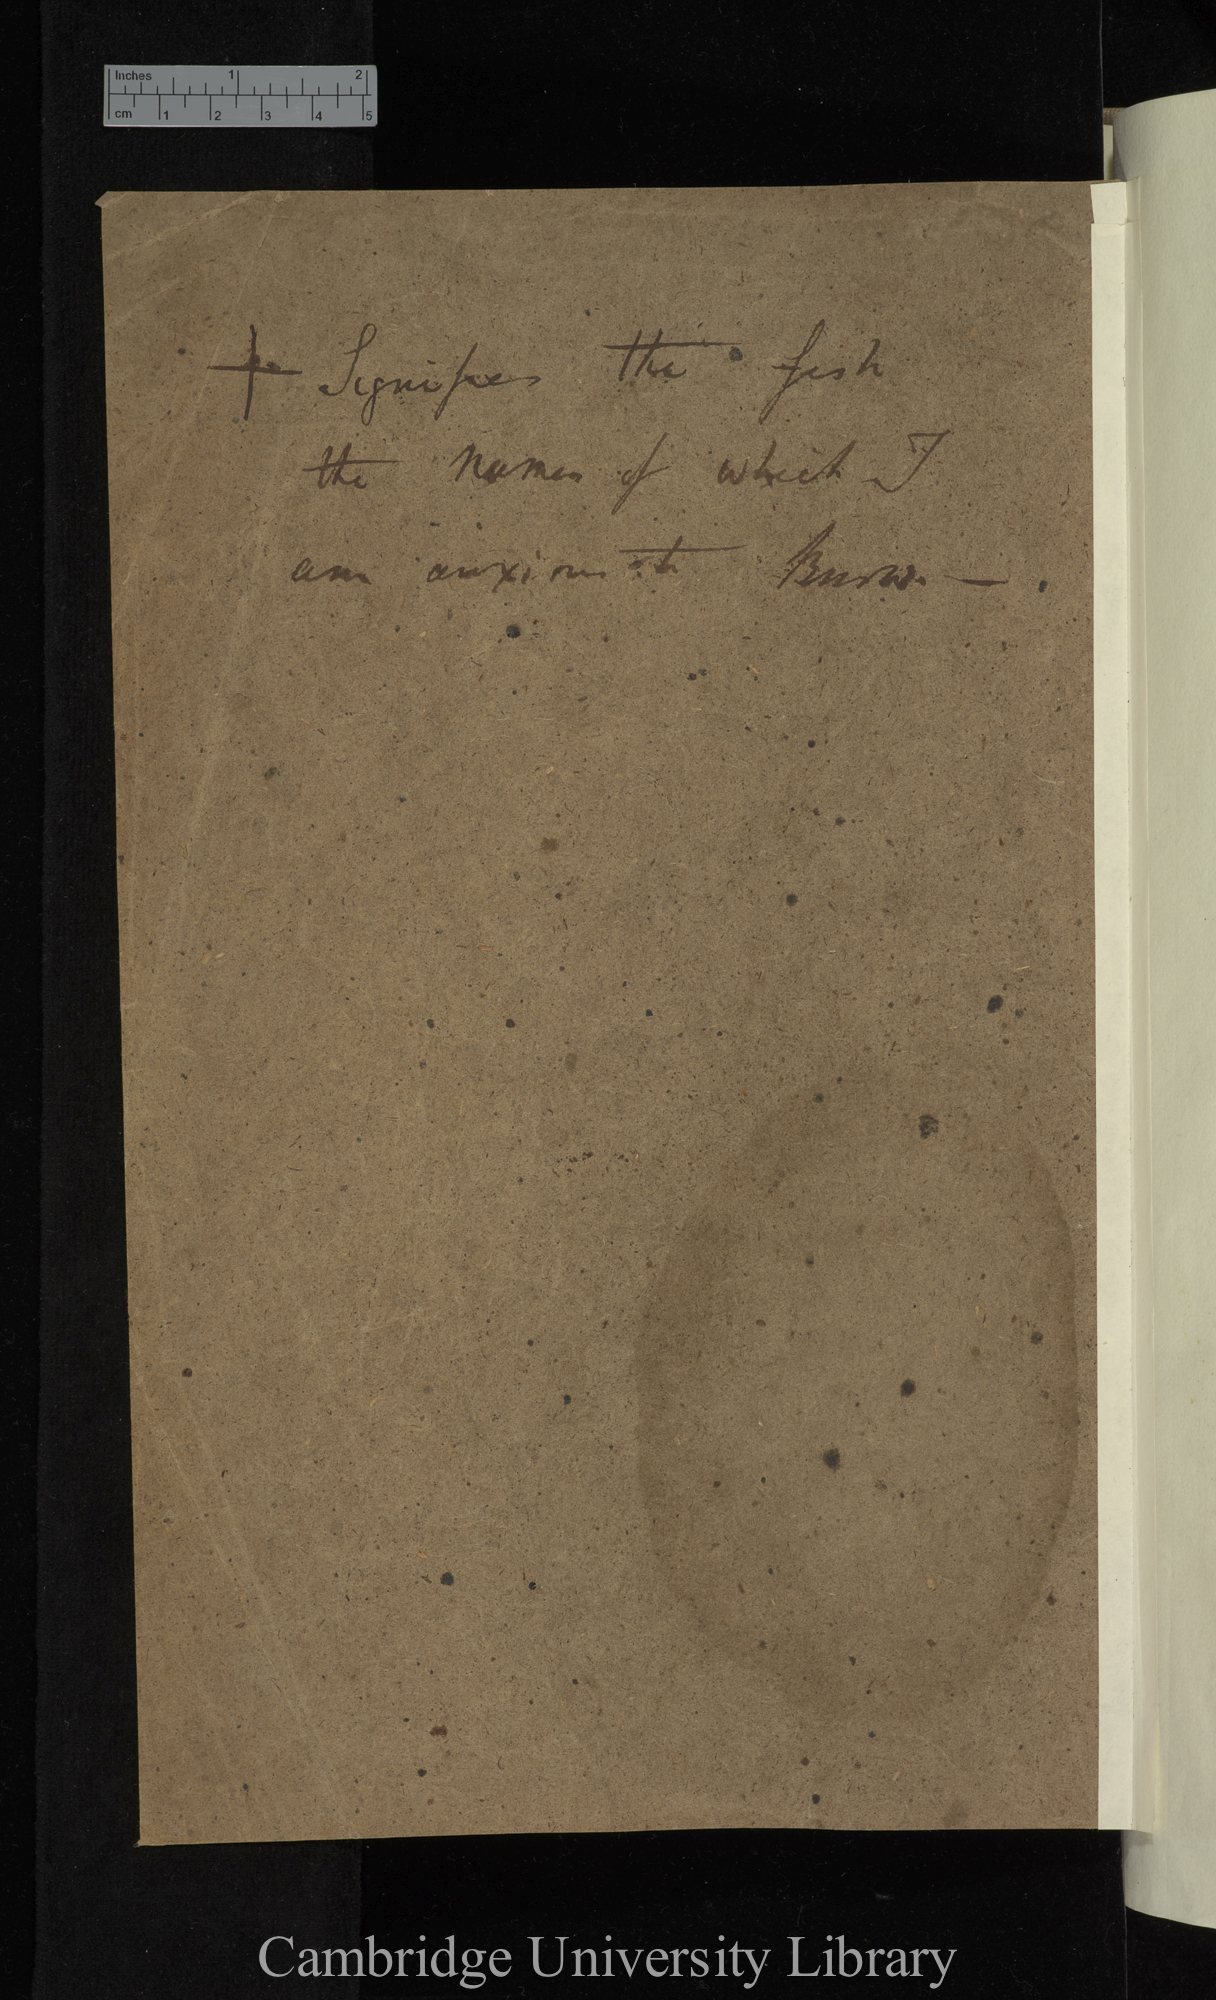 Inches 1 2
cm 1 2 3 4 5
+ Signifies the fish
the names of which I
am anxious to know. —
Cambridge University Library